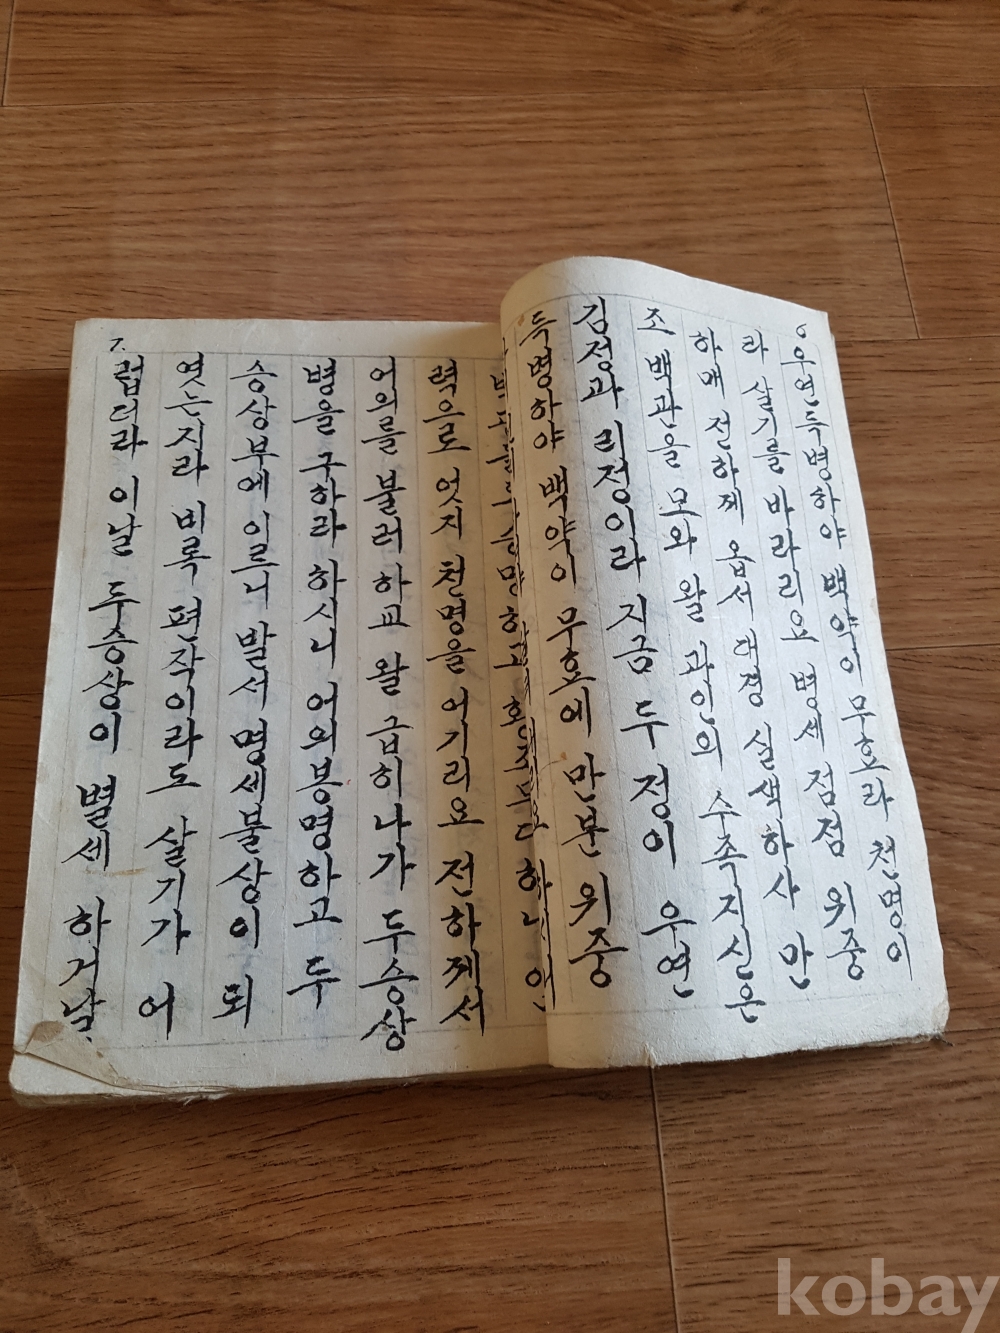 6
우연득병하야 백약이 무효라 천명이
라 살기를 바라리요 병세 점점 위중
하매 전하께 옵서 대경 실색하사 만
조 백관을 모와 왈 과인의 수족지신은
김정과 리정이라 지금 두 정이 우연
득병하야 백약이 무효에 만분 위중
하니
7.
력으로 엇지 천명을 어기리요 전하께서
어의를 불러 하교 왈 급히 나가 두승상
병을 구하라 하시니 어의봉명하고 두
승상부에 이르니 발서 명세불상이 되
엿는지라 비록 편작이라도 살기가 어
럽더라 이날 두승상이 별세 하거날
kobay